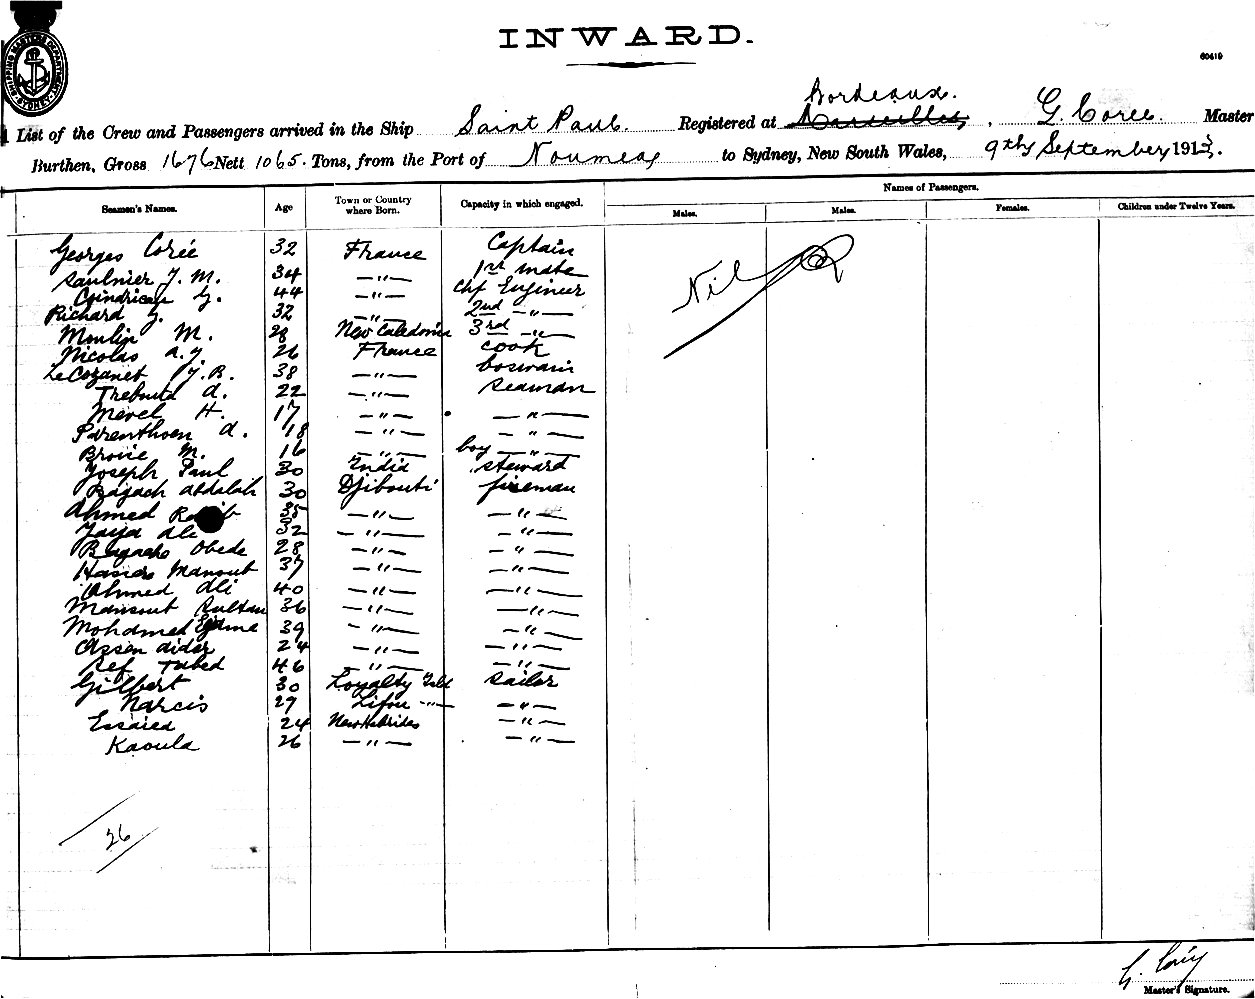 SHIPPING MASTERS DEPARTMENT SYDNEY
INWARD.
60419
Bordeaux.
A List of the Crew and Passengers arrived in the Ship Saint Paul. Registered at Marseilles, G. Corée Master
Burthen, Gross 1676 Nett 1065. Tons, from the Port of Noumea to Sydney, New South Wales, 9th September 1913.
Names of Passengers.
Seamen's Names. Age Town or Country where Born. Capacity in which engaged. Males. Males. Females. Children under Twelve Years.
Georges Corée 32 France Captain Nil
Saulnier J. M. 34 —"— 1st mate
G. 44 —"— Chf Engineer
Richard G. 32 —"— 2nd —"—
Moulin M. 28 New Caledonia 3rd —"—
Nicolas A. J. 26 France cook
Le Cozanet J. B. 38 —"— boswain
A. 22 —"— seaman
Mevel H. 17 —"— —"—
Parenthoen A. 18 —"— —"—
M. 16 —"— boy —"—
Joseph Paul 30 India steward
Bagach Abdalah 30 Djibouti fireman
Ahmed 35 —"— —"—
Ali 32 —"— —"—
Obede 28 —"— —"—
Mansout 37 —"— —"—
Ahmed Ali 40 —"— —"—
Mansout Sultan 36 —"— —"—
Mohamed 39 —"— —"—
Assen didar 24 —"— —"—
Sef Tabed 46 —"— —"—
Gilbert 30 Loyalty Isld sailor
Narcis 27 Lifou —"— —"—
Essaied 24 New Hebrides —"—
Kaoula 26 —"— —"—
26
G. Corée
Master's Signature.